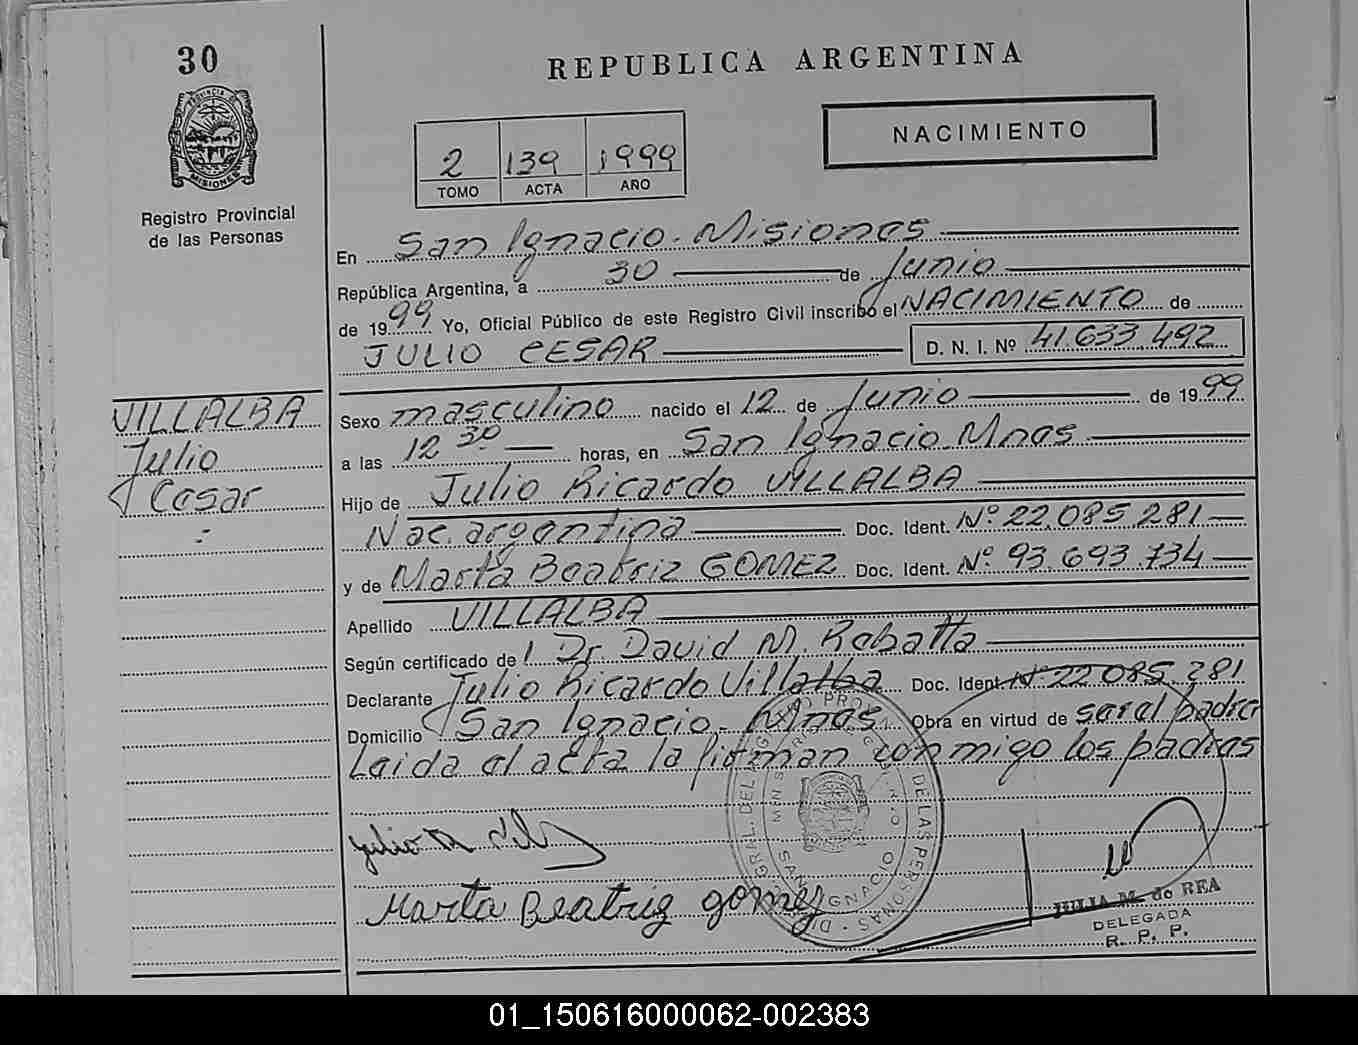 30
REPUBLICA ARGENTINA
PROVINCIA DE
MISIONES
Registro Provincial
de las Personas
2 139 1999
TOMO ACTA AÑO
NACIMIENTO
En San Ignacio - Misiones
República Argentina, a 30 de Junio
de 1999 Yo, Oficial Público de este Registro Civil inscribo el NACIMIENTO de
JULIO CESAR D. N. I. Nº 41.633.492
VILLALBA
Julio
Cesar
Sexo masculino nacido el 12 de Junio de 1999
a las 12 30 horas, en San Ignacio Mnes
Hijo de Julio Ricardo VILLALBA
Nac. argentina Doc. Ident. Nº 22.085.281
y de Marta Beatriz GOMEZ Doc. Ident. Nº 93.693.734
Apellido VILLALBA
Según certificado de Dr. David M. Rabatta
Declarante Julio Ricardo Villalba Doc. Ident. Nº 22.085.281
Domicilio San Ignacio - Mnes. Obra en virtud de ser el padre
Leida el acta la firman conmigo los padres
Julio R
Marta Beatriz gomez
DE LAS PERSONAS
SAN IGNACIO
JULIA M. de REA
DELEGADA
R. P. P.
01_150616000062-002383